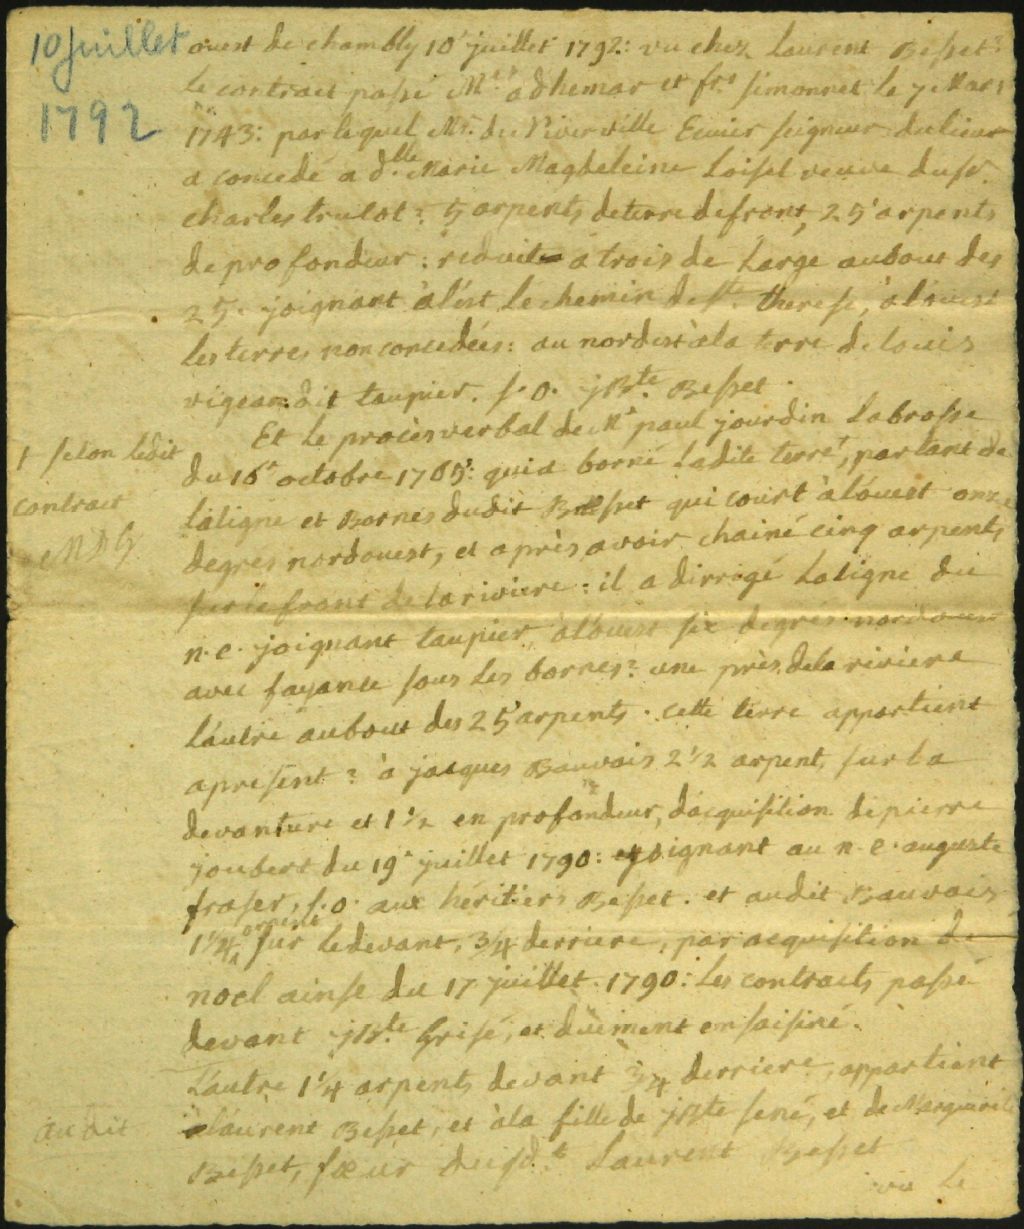 10 Juillet
1792
ouest de chambly 10e juillet 1792: vu chez Laurent Besset
le contrait passé Mes. adhemar et frs. simonnet le 7 Mars
1743: par lequel Mr. du Niverville Ecuier seigneur du lieu
a concedé a dlle. Marie Magdeleine Loisel veuve du sr.
charles trulot: 5 arpents de terre de front, 25 arpents
de profondeur: reduit a trois de Large au bout des
25. joignant à l'est Le chemin de ste. therese, à l'ouest
les terres non concedées: au nordest à la terre de louis
vigeant dit taupier. s. o. jBte. Besset.
Et Le procès verbal de Mr paul jourdin Labrosse
du 16e octobre 1765: qui a borné Ladite terre†, partant de
La ligne et Bornes dudit Besset qui court à l'ouest onze
degres nordouest, et après avoir chainé cinq arpents
sur le front de la riviere: il a dirrogé La ligne du
n. e. joignant taupier à l'ouest six degrés nordouest
avec fayance sous Les bornes: une près de la riviere
L'autre au bout des 25 arpents. cette terre appartient
apresent: à jacques Bauvais 2 1/2 arpent, sur la
devanture et 1 1/2 en profondeur, d'acquisition de pierre
joubert du 19e juillet 1790: joignant au n. e. auguste
fraser, s. o. aux héritiers Besset. et audit Bauvais
1 1/4 arpent sur Le devant, 3/4 derriere, par acquisition de
noel ainse du 17 juillet 1790: Les contracts passé
devant jBte. Grisé, et duëment ensaisiné.
L'autre 1 1/4 arpents devant 3/4 derriere, appartient
à Laurent Besset, et à la fille de jBte sené, et de Marguerite
Besset, sœur dudt. Laurent Besset
vu le
† selon ledit
contract
au dit